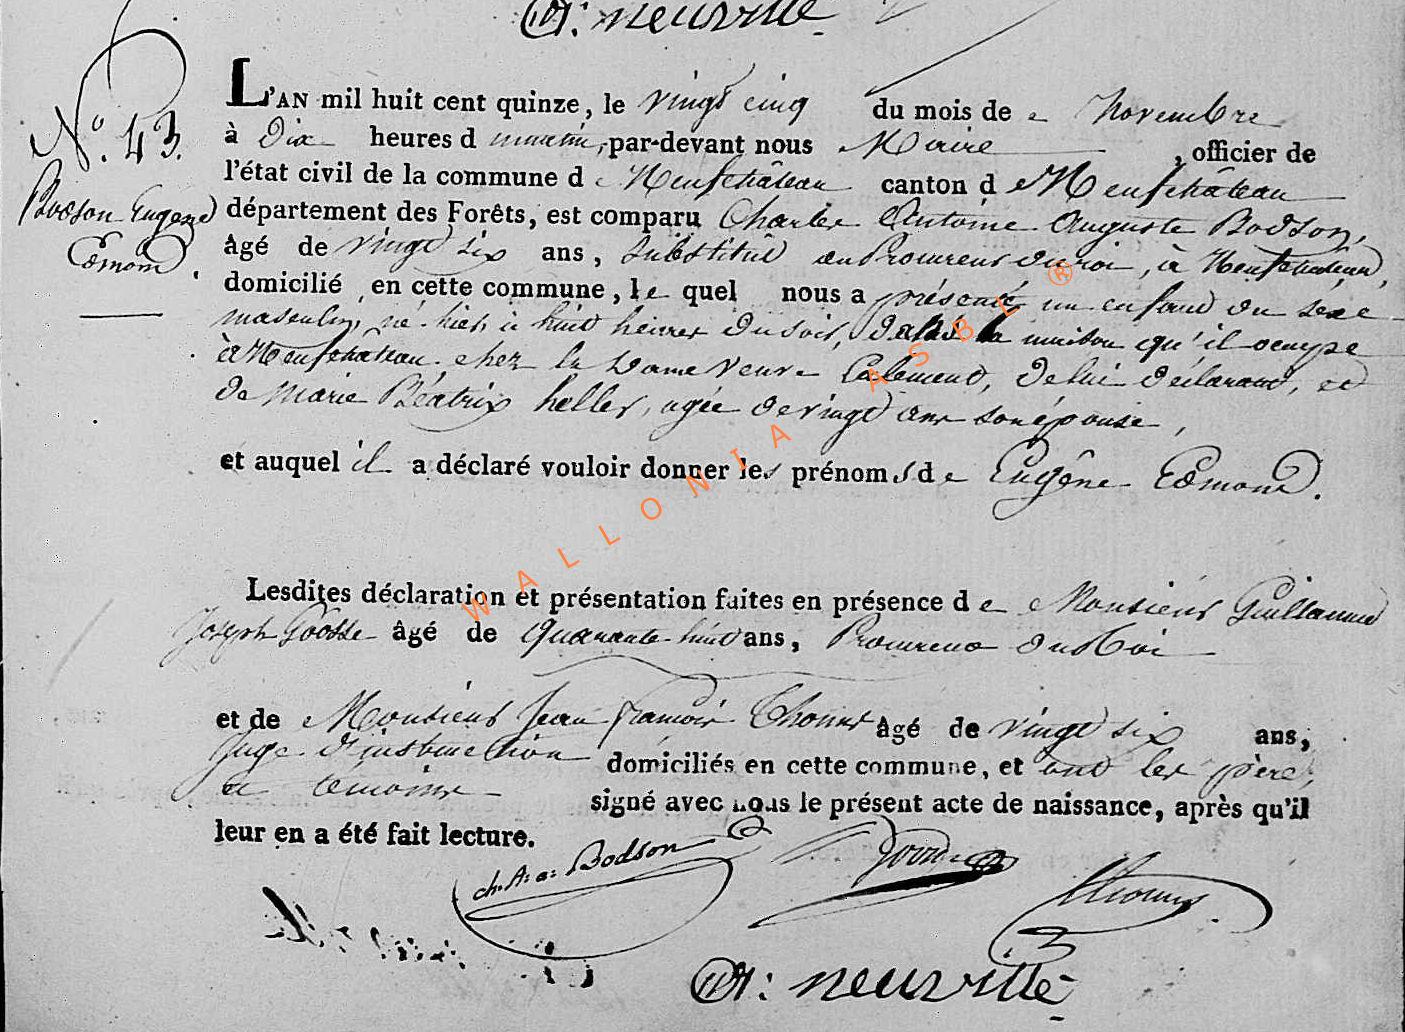 neuville
N.° 43.
Bodson Eugene
Edmond.
L'AN mil huit cent quinze, le vingt cinq du mois de Novembre
à Dix heures d matin, par-devant nous Maire, officier de
l'état civil de la commune d Neufchâteau canton d Neufchâteau
département des Forêts, est comparu Charles Antoine Auguste Bodson,
âgé de vingt six ans, Substitut au Procureur du roi, à Neufchateau,
domicilié en cette commune, le quel nous a présenté un enfant du sexe
masculin, né hier à huit heures du soir, dans la maison qu'il occupe
à Neufchateau chez la Dame veuve de lui déclarant, et
de Marie Béatrix heller, agée de vingt ans son épouse,
et auquel il a déclaré vouloir donner les prénoms de Eugêne Edmond.
Lesdites déclaration et présentation faites en présence de Monsieur Guillaume
Joseph Goosse âgé de quarante-huit ans, Procureur du Roi
et de Monsieur Jean françois âgé de vingt six ans,
Juge d'instruction domiciliés en cette commune, et ont les père,
et témoins signé avec nous le présent acte de naissance, après qu'il
leur en a été fait lecture.
ch. A: a: Bodson
neuville
WALLONIA ASBL ®